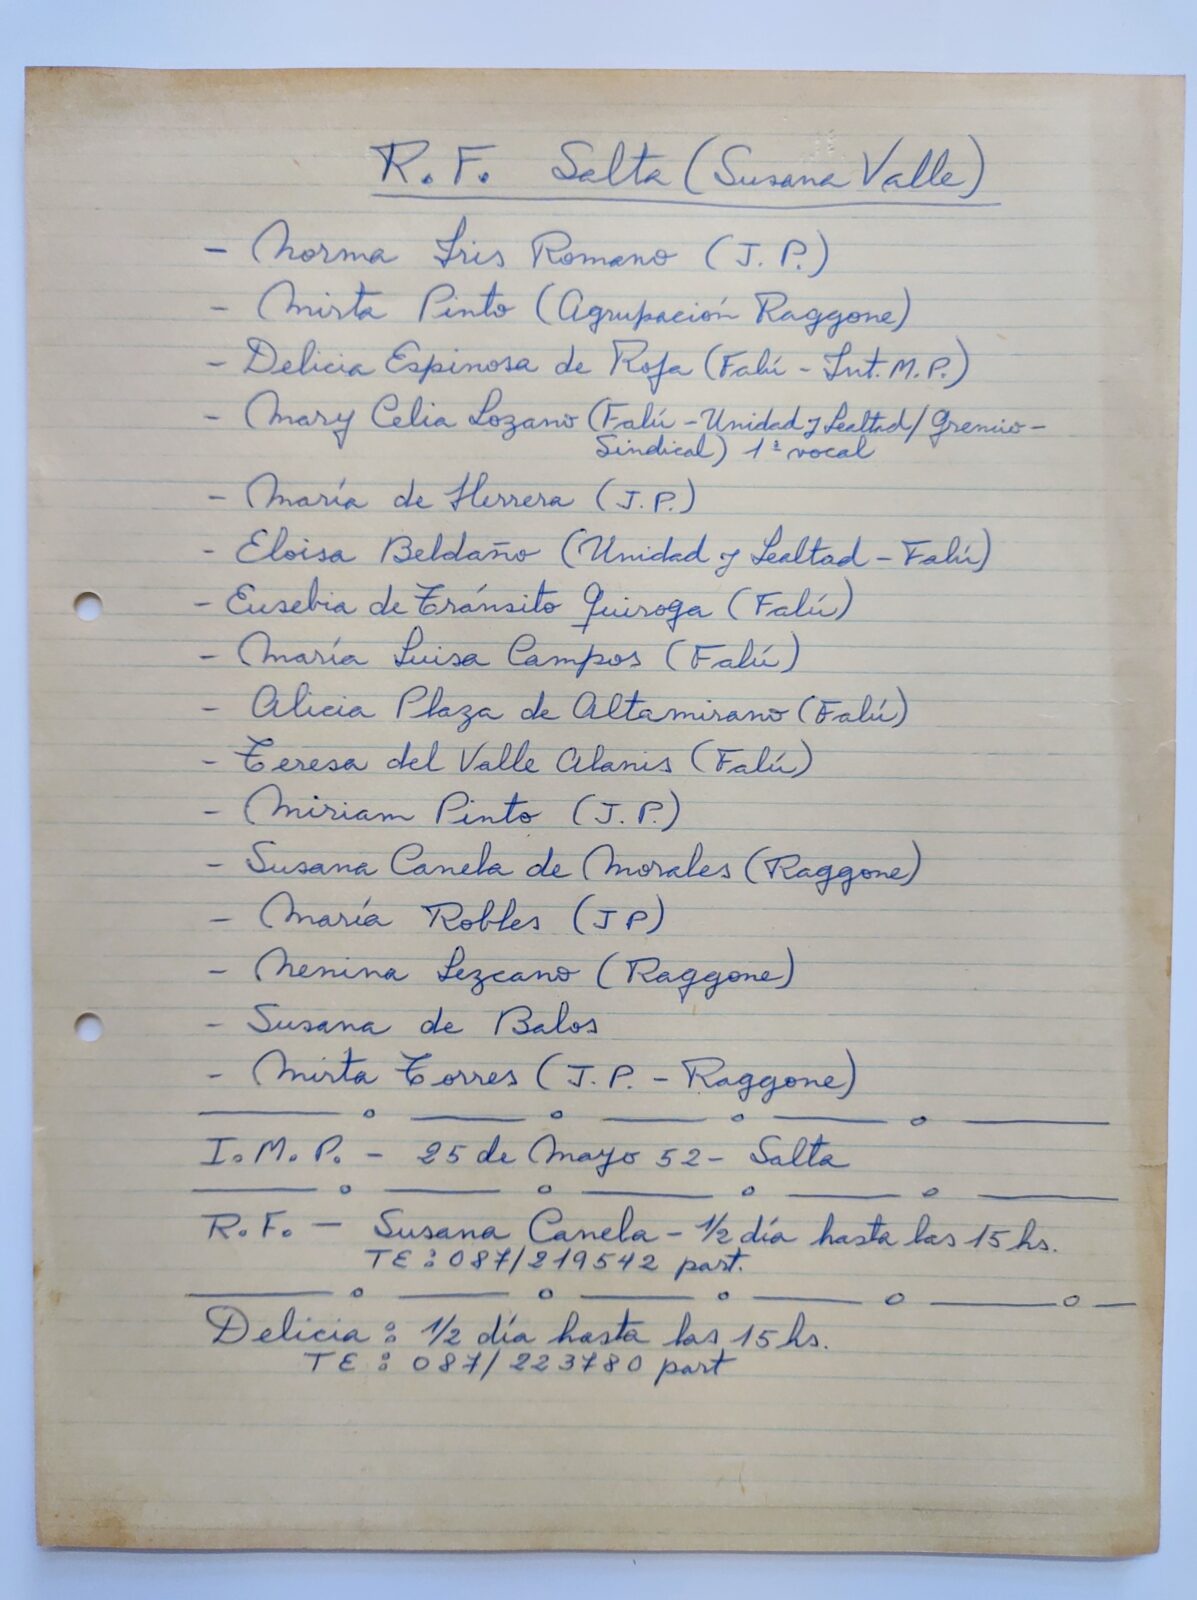 R.F. Salta (Susana Valle)
- Norma Iris Romano (J.P.)
- Mirta Pinto (Agrupación Raggone)
- Delicia Espinosa de Roja (Falú - Int. M.P.)
- Mary Celia Lozano (Falú - Unidad y Lealtad / Gremio-
Sindical) 1ª vocal
- María de Herrera (J.P.)
- Eloisa Beldaño (Unidad y Lealtad - Falú)
- Eusebia de Tránsito Quiroga (Falú)
- María Luisa Campos (Falú)
- Alicia Plaza de Altamirano (Falú)
- Teresa del Valle Alanis (Falú)
- Miriam Pinto (J.P.)
- Susana Canela de Morales (Raggone)
- María Robles (JP)
- Nenina Lezcano (Raggone)
- Susana de Balos
- Mirta Torres (J.P. - Raggone)
I.M.P. - 25 de Mayo 52 - Salta
R.F. - Susana Canela - 1/2 día hasta las 15 hs.
TE: 087/219542 part.
Delicia: 1/2 día hasta las 15 hs.
TE: 087/223780 part